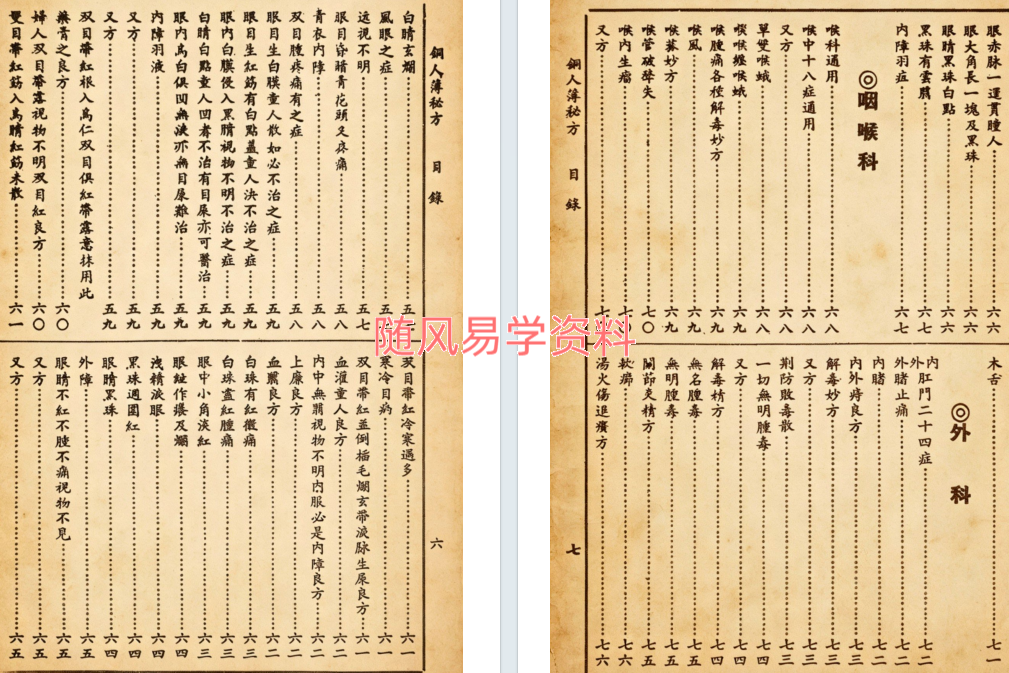 銅人簿秘方 目錄 六
白睛玄爛
風眼之症
远視不明 五七
眼目昏睛青花頭又疼痛 五八
青衣內障 五八
双目腫疼痛有之症 五八
眼目生白膜童人散如必不治之症 五九
眼目生紅筋有白點蓋童人決不治之症 五九
眼內白膜侵入黑睛視物不明不治之症 五九
白睛白點童人凹者不治有目屎亦可醫治 五九
眼內烏白俱凹無淚亦無目屎難治 五九
內障羽液 五九
又方 五九
又方 五九
双目帶紅根入烏仁双目俱紅帶露意抹用此
藥膏之良方 六〇
婦人双目帶露視物不明双目紅良方 六〇
雙目帶紅筋入烏睛紅筋未散 六一
双目帶紅冷寒過多 六一
寒冷目病 六一
双目帶紅並倒插毛爛玄帶淚脉生屎良方 六一
血灌童人良方 六二
內中無翳視物不明內服必是內障良方 六二
上廉良方 六二
血翳良方 六二
白珠有紅微痛 六三
白珠蓋紅腫痛 六三
眼中小角淡紅 六三
眼紐作癢及爛 六四
洩精淚眼 六四
黑珠週圍紅 六四
眼睛黑珠 六四
外障 六五
眼睛不紅不腫不痛視物不見 六五
又方 六五
又方 六五
眼赤脉一運貫瞳人 六六
眼大角長一塊及黑珠 六六
眼睛黑珠白點 六六
黑珠有雲翳 六七
內障羽症 六七
◎咽喉科
喉科通用 六八
喉中十八症通用 六八
又方 六八
單雙喉蛾 六八
喉喉纏喉蛾 六九
喉腫痛各種解毒妙方 六九
喉風 六九
喉蓁妙方 六九
喉管破聲失 七〇
喉內生瘤 七〇
又方
木舌 七一
◎外科
內外肛門二十四症 七二
外睹止痛 七二
內睹 七二
內外痔良方 七三
解毒妙方 七三
又方 七三
荊防敗毒散 七三
一切無明腫毒 七四
又方 七四
解毒精方 七四
無名腫毒 七五
無明腫毒 七五
關節炎精方 七五
軟癤 七六
湯火傷退癀方 七六
銅人簿秘方 目錄 七
随风易学资料